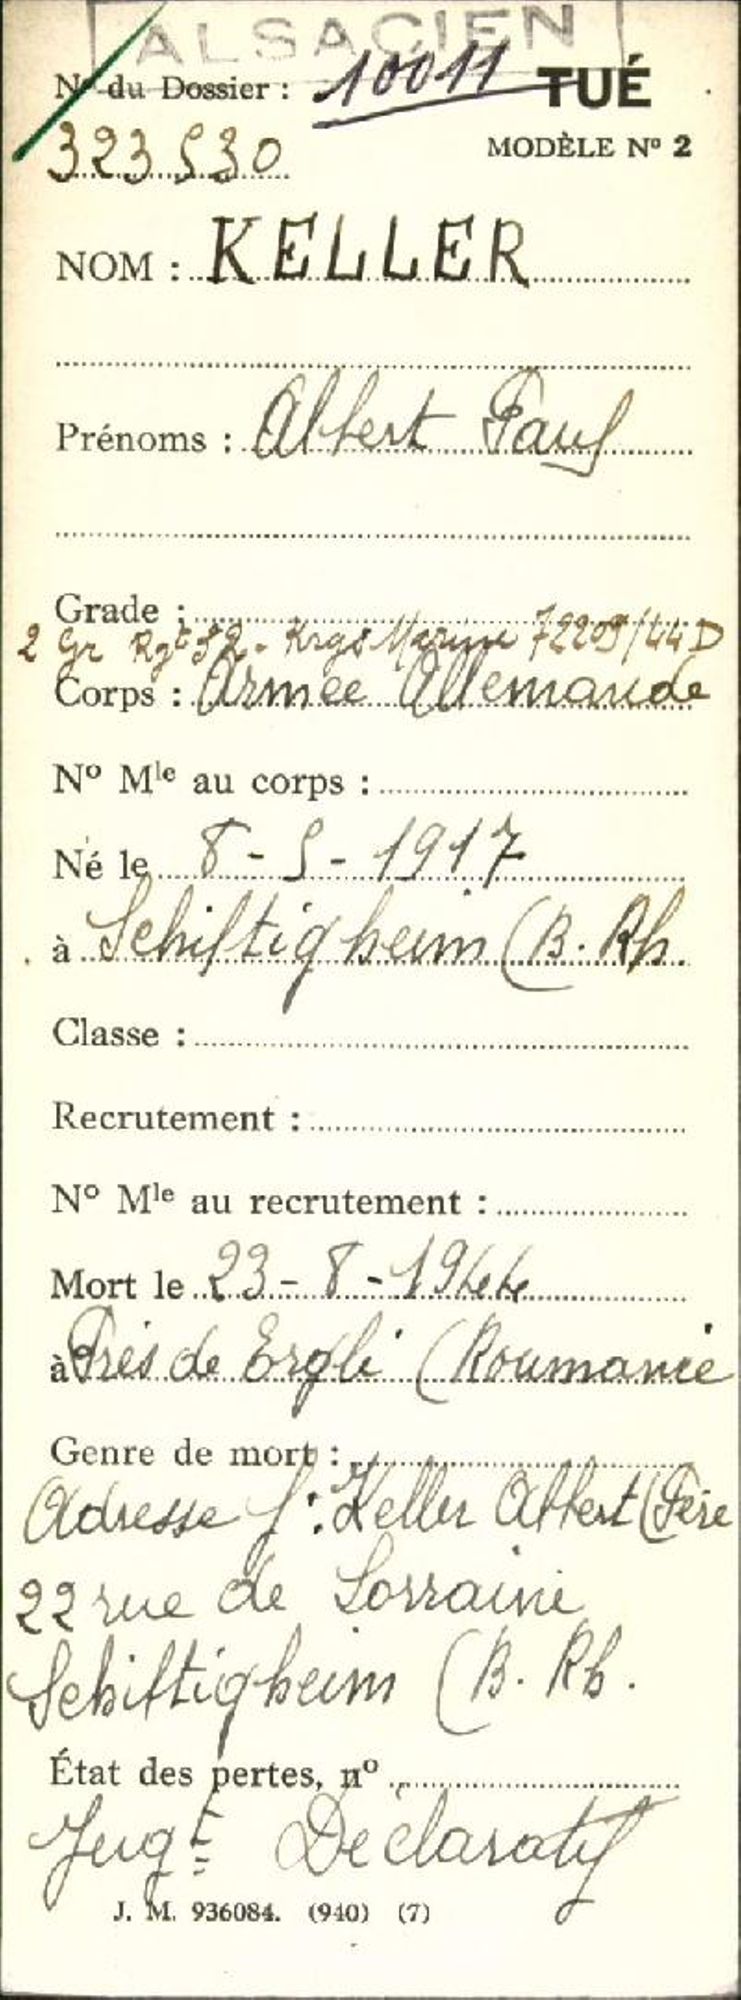 ALSACIEN
N° du Dossier : 10011 TUÉ
323530 MODÈLE Nº 2
NOM : KELLER
Prénoms : Albert Paul
Grade :
2 Gr Rgt 52. Krgs Marine 72209/44 D
Corps : Armée Allemande
Nº Mle au corps :
Né le 8-5-1917
à Schiltigheim (B. Rh.
Classe :
Recrutement :
Nº Mle au recrutement :
Mort le 23-8-1944
à Près de Ergli (Roumanie
Genre de mort :
Adresse f: Keller Albert (Père
22 rue de Lorraine
Schiltigheim (B. Rh.
État des pertes, nº
Jugt Déclaratif
J. M. 936084. (940) (7)